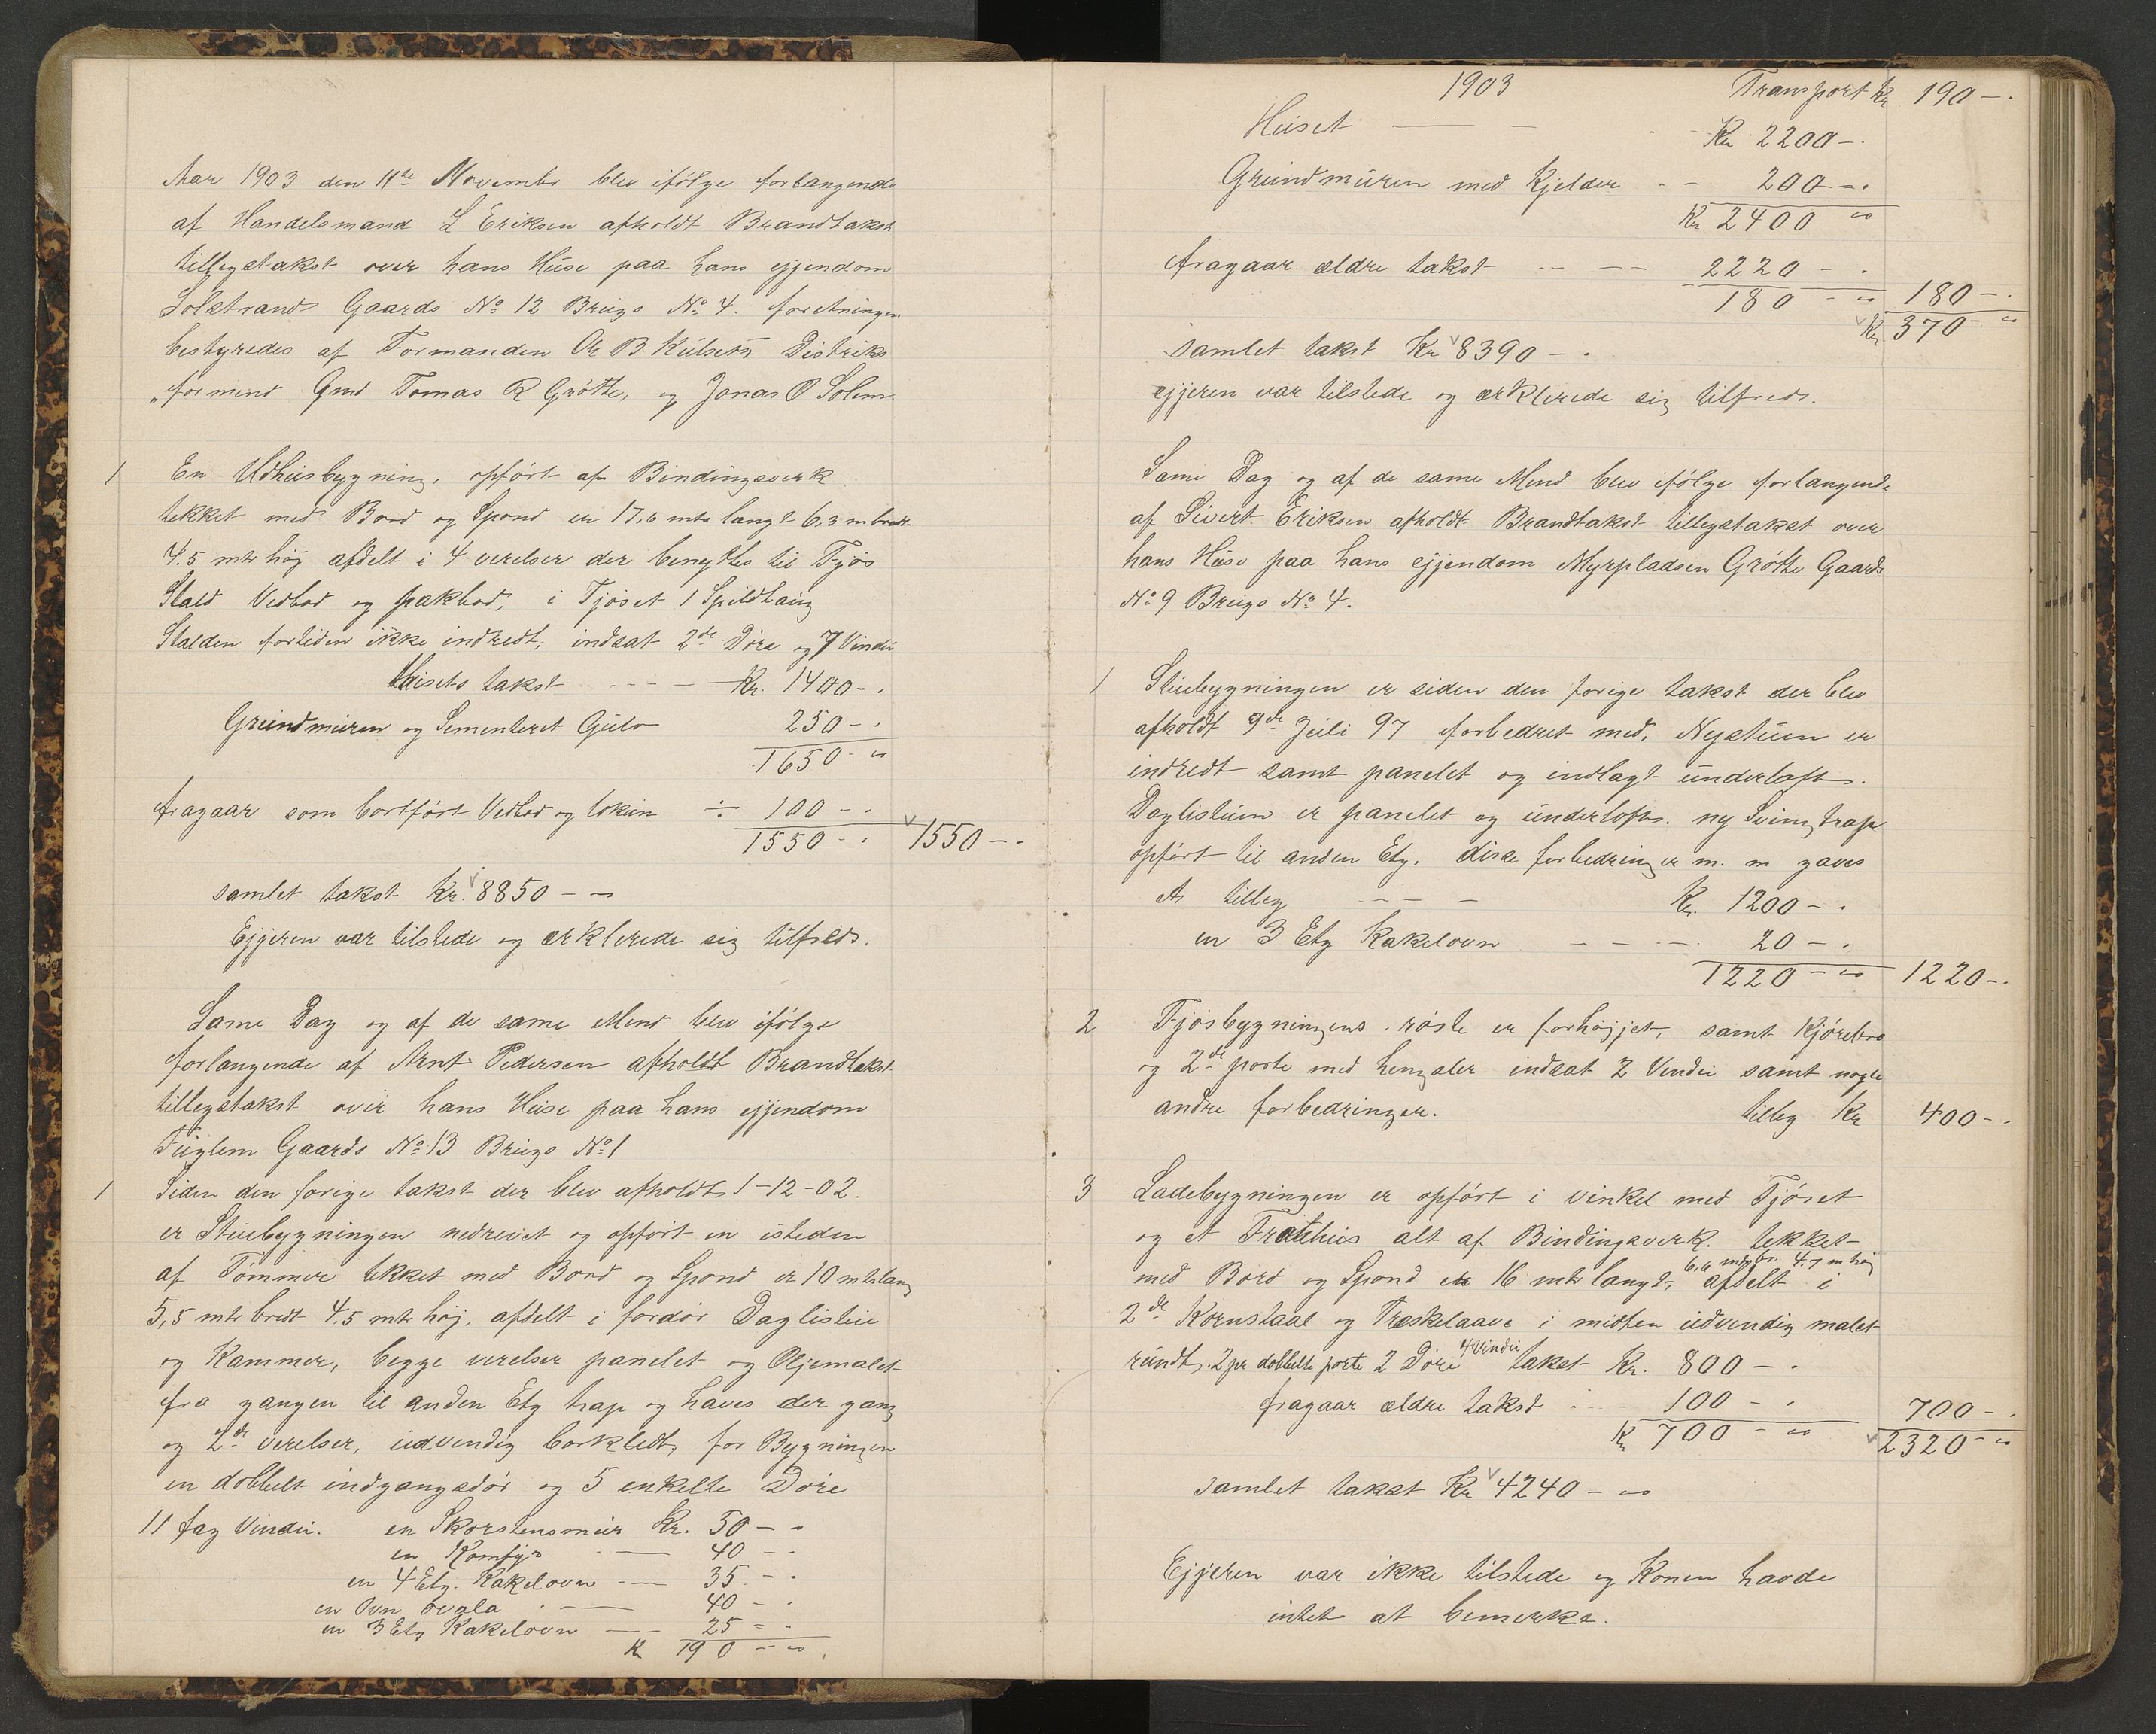 Aar 1903 den 11te Novembr blev ifölge forlangende
af Handelsmand L Eriksen afholdt Brandtakst
tillegstakst over hans Huse paa hans ejjendom
Solstrand Gaards No 12 Brugs No 4. forretningen
bestyredes af Formanden O B Kulseth Distrikts
formend Gmd Tomas R Grötte, og Jonas O Solem.
1 En Udhusbygning, opfört af Bindingsverk
tekket med Bord og Spond er 17,6 mtr langt 6,3 m bredt
4.5 mtr höj afdelt i 4 verelser der benyttes til Fjös
Stald Vedbod og pakbod, i Fjöset 1 Spildtaug
Stalden fortiden ikke indredt, indsat 2de Döre og 7 Vindu
Husets takst - - - Kr. 1400 - .
Grundmuren og Sementeret Gulv 250 - .
1650 - "
fragaar som bortfört Vedbod og lokum ÷ 100 - .
1550 - . 1550 - .
samlet takst Kr. 8850 - -
Ejjeren var tilstede og erklerede sig tilfreds.
Same Dag og af de same Mend blev ifölge
forlangende af Arnt Pedersen afholdt Brandtakst
tillegstakst over hans Huse paa hans ejjendom
Fuglem Gaards No 13 Brugs No 1
1 Siden den forige takst der blev afholdt 1-12-02.
er Stuebygningen nedrevet og opfört en isteden
af Tömmer tekket med Bord og Spond er 10 mtr lang
5,5 mtr bredt 4.5 mtr höj, afdelt i fordör Daglistue
og Kammer, begge verelser panelet og Oljemalet
fra gangen til anden Etg trap og haves der gang
og 2de verelser, udvendig bordkledt, for Bygningen
en dobbelt indgangsdör og 5 enkelte Döre
11 fag Vindu. en Skorstensmur Kr. 50 - -
en Komfyr - 40 - -
en 4 Etg. Kakelovn - 35 - -
en Ovn ovala - 40 - .
en 3 Etg Kakelovn - 25 - -
Kr 190 - "
1903 Transport Kr 190 - .
Huset - - Kr 2200 - .
Grundmuren med Kjelder - - 200 - .
Kr 2400 "
fragaar ældre takst - - - 2220 - .
180 - " 180 - .
Kr 370 - "
Samlet takst Kr 8390 - .
ejjeren var tilstede og erklerede sig tilfreds.
Same Dag og af de same Mend blev ifölge forlangende
af Sivert Eriksen afholdt Brandtakst tillegstakst over
hans Huse paa hans ejjendom Myrpladsen Grötte Gaards
No 9 Brugs No 4.
1 Stuebygningen er siden den forige takst der blev
afholdt 9de Juli 97 forbedret med, Nystuen er
indredt samt panelet og indlagt underloft.
Daglistuen er panelet og underloft. ny Svingtrap
opfört til anden Etg. disse forbedringer m. m gaves
et tilleg - - - Kr. 1200 - .
en 3 Etg Kakelovn - - - 20 - .
1220 - " 1220 - .
2 Fjösbygningens röste er forhöjjet, samt Kjörebro
og 2de porte med hengsler indsat 2 Vindu samt nogle
andre forbedringer. tilleg Kr 400 - .
3 Ladebygningen er opfört i vinkel med Fjöset
og et alt af Bindingsverk. tekket
6,6 mtr br. 4.7 m höj
med Bord og Spond er 16 mtr langt, afdelt i
2de Kornstaal og Treskelaave i midten udvendig malet
4 Vindu
rundt. 2 pr dobbelte porte 2 Döre takst Kr. 800 - .
fragaar ældre takst . 100 - . 700 - .
Kr 700 - " 2320 - "
Samlet takst Kr 4240 - "
Ejjeren var ikke tilstede og Konen havde
intet at bemerke.